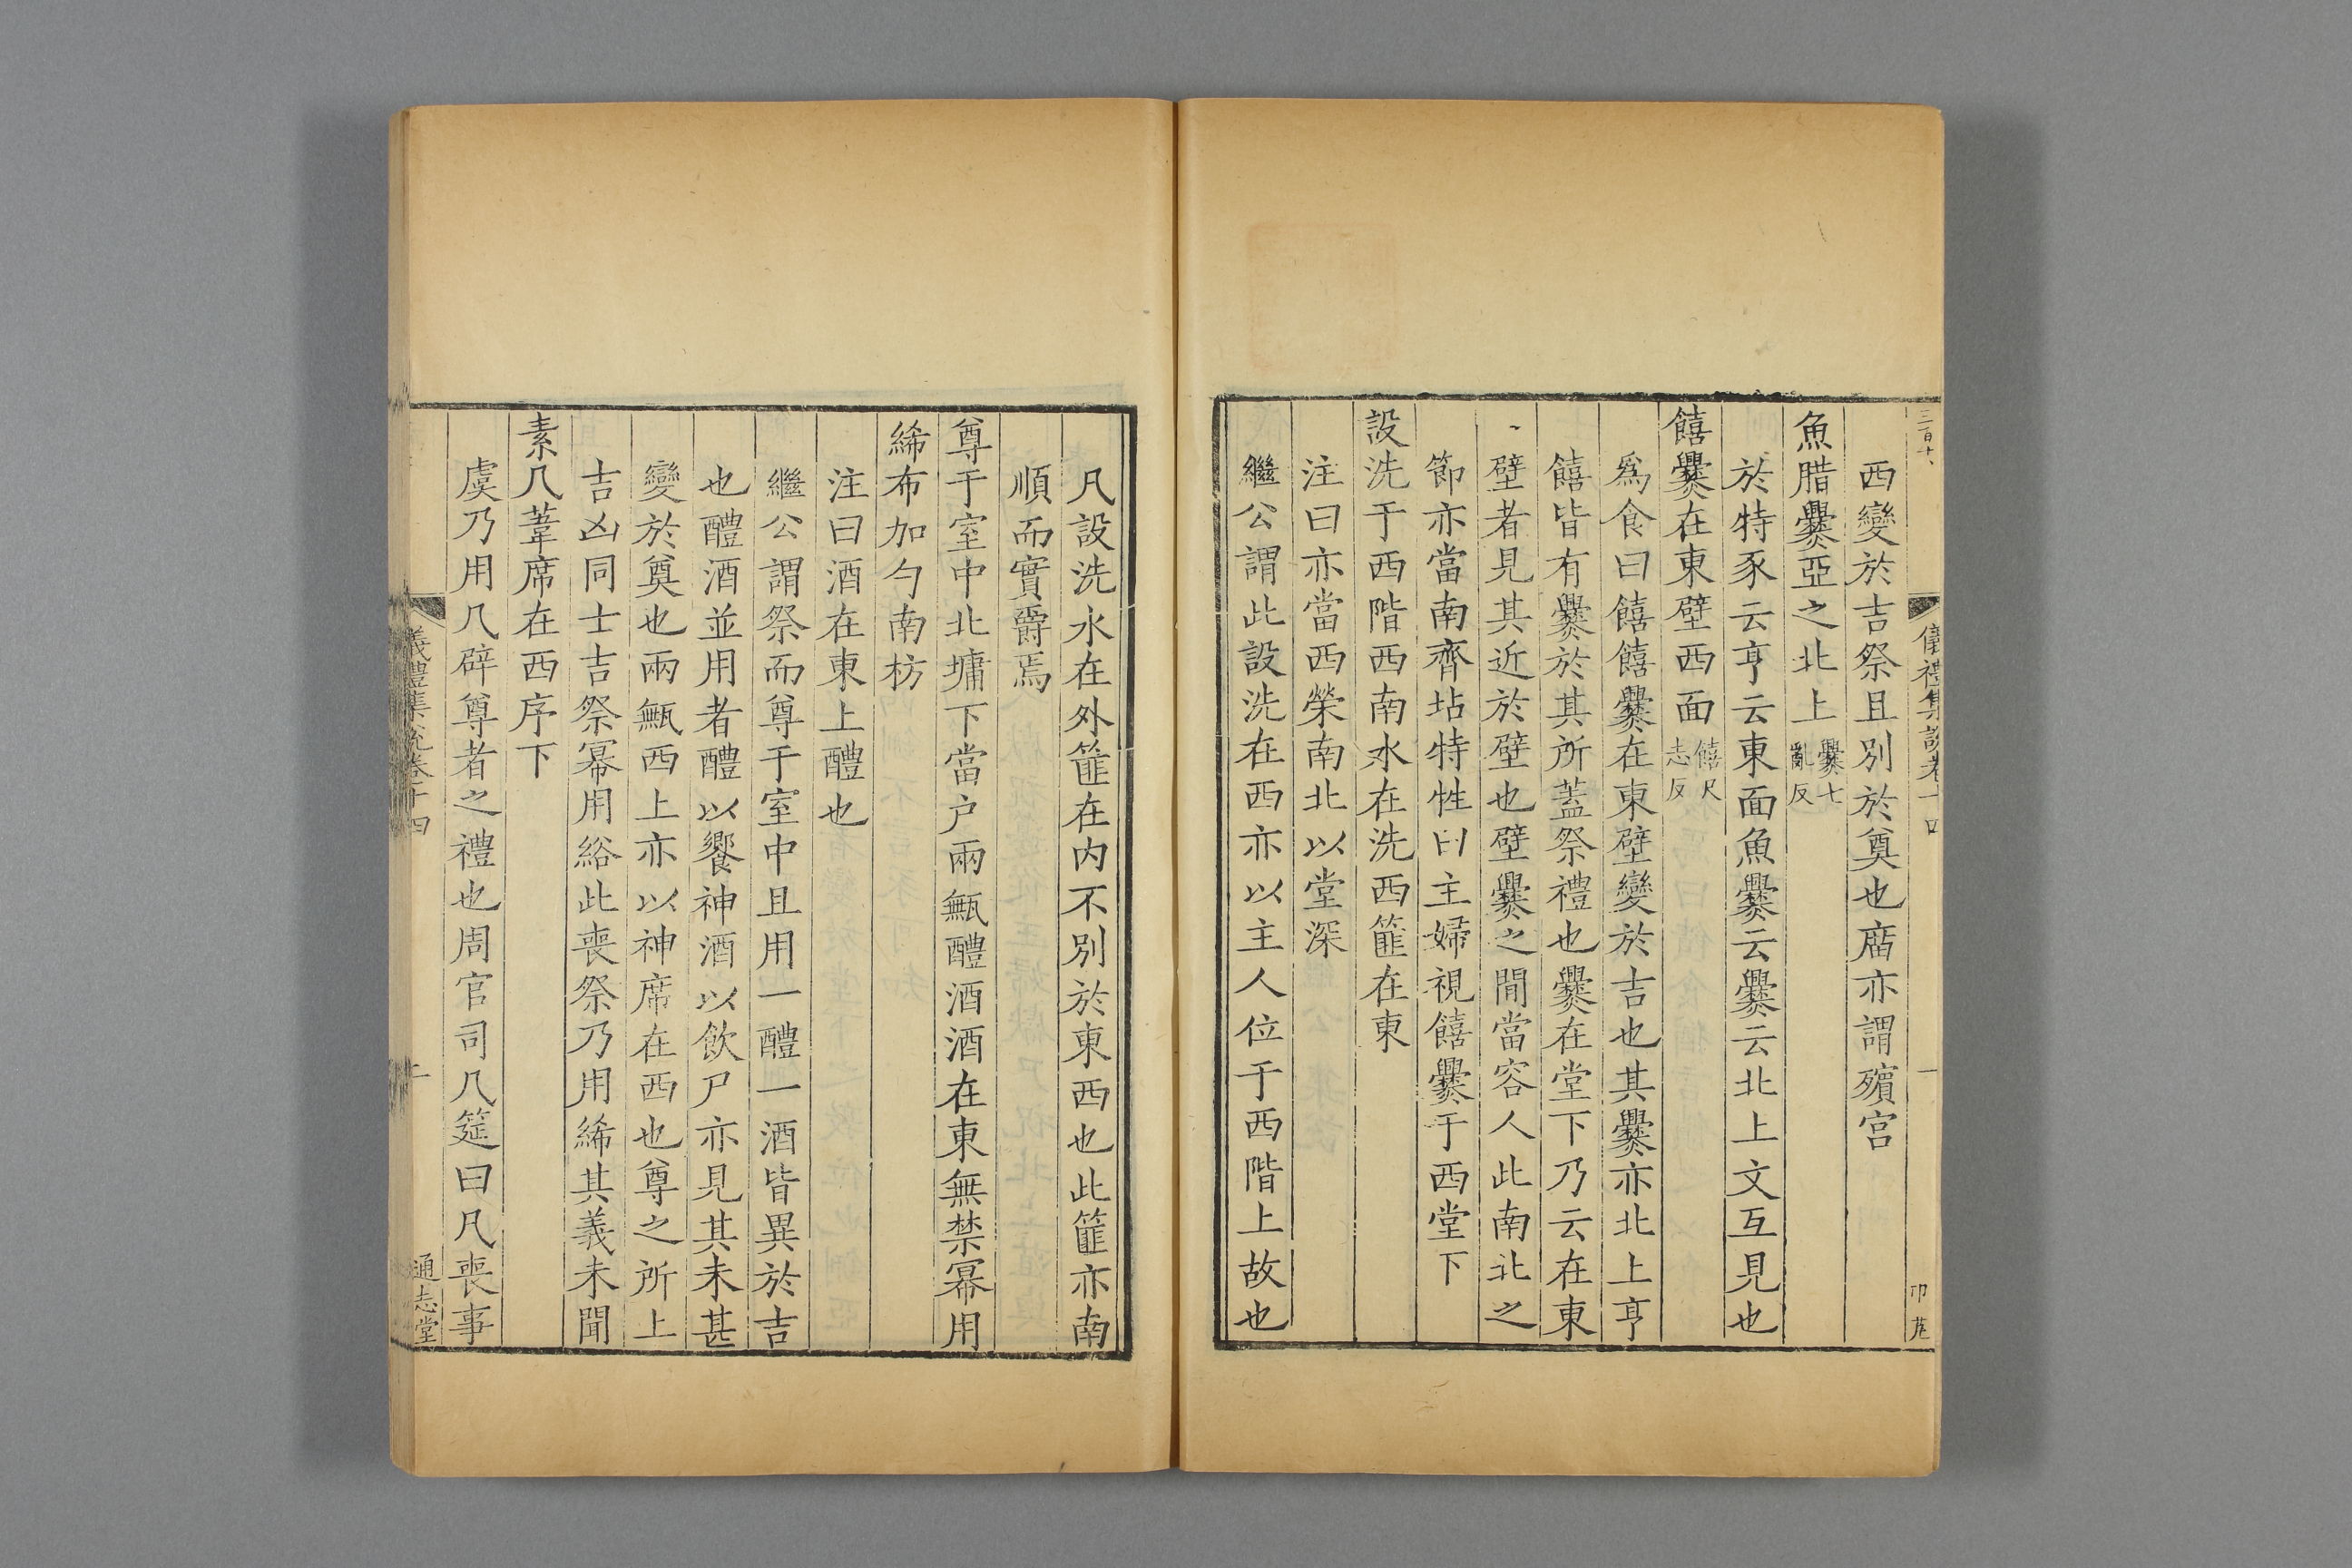 三百十
儀禮集說卷十四
一
西變於吉祭且別於奠也廇亦謂殯宮
魚腊爨亞之北上爨七亂反
於特豕云亨云東面魚爨云爨云北上文互見也
饎爨在東壁西面饎尺志反
為食曰饎饎爨在東壁變於吉也其爨亦北上亨
饎皆有爨於其所蓋祭禮也爨在堂下乃云在東
壁者見其近於壁也壁爨之間當容人此南北之
節亦當南齊坫特牲曰主婦視饎爨于西堂下
設洗于西階西南水在洗西篚在東
注曰亦當西榮南北以堂深
繼公謂此設洗在西亦以主人位于西階上故也
凡設洗水在外篚在內不別於東西也此篚亦南
順而實爵焉
尊于室中北墉下當户兩甒醴酒酒在東無禁冪用
絺布加勺南枋
注曰酒在東上醴也
繼公謂祭而尊于室中且用一醴一酒皆異於吉
也醴酒並用者醴以饗神酒以飲尸亦見其未甚
變於奠也兩甒西上亦以神席在西也尊之所上
吉凶同士吉祭冪用綌此喪祭乃用絺其義未聞
素几葦席在西序下
虞乃用几辟尊者之禮也周官司几筵曰凡喪事
儀禮集說卷十四
二
通志堂